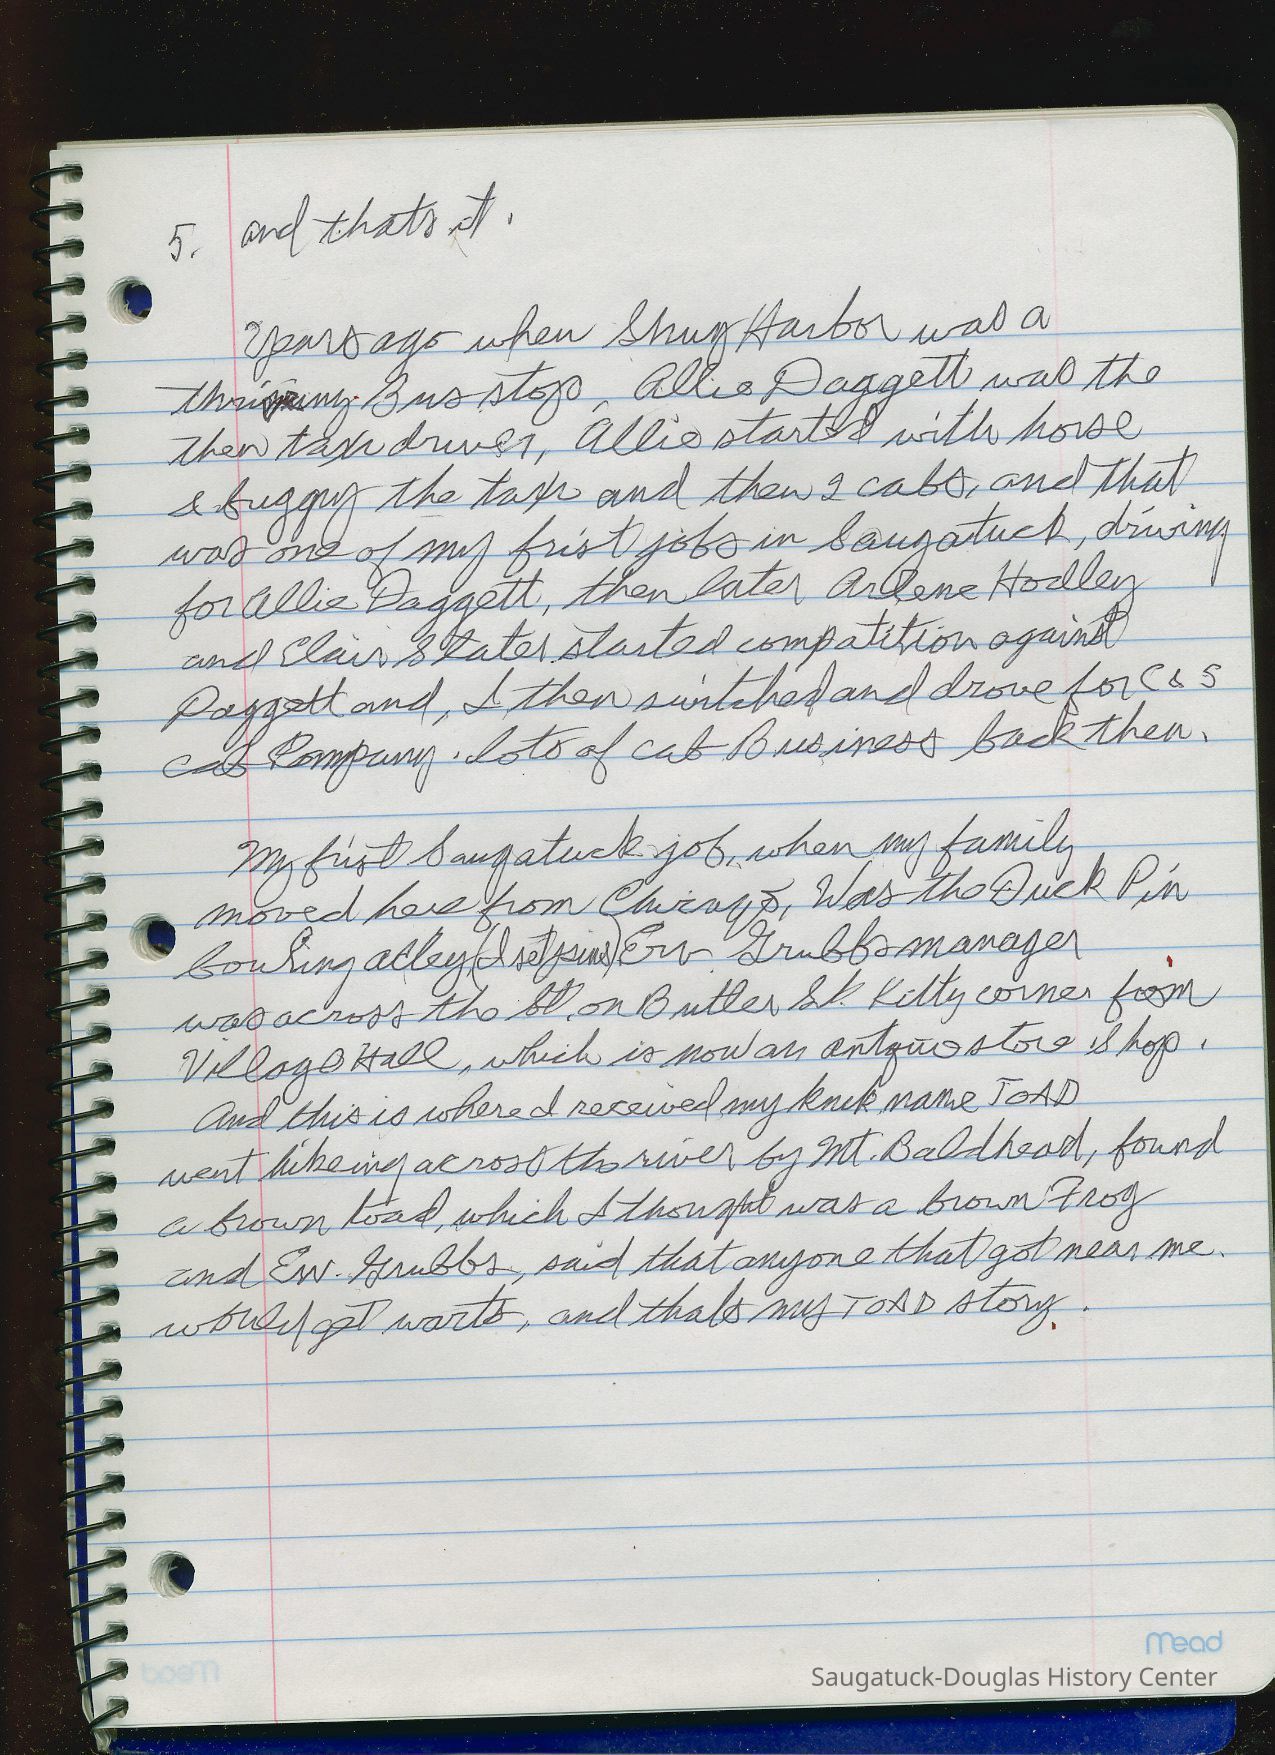 5. and thats it.
Years ago when Shug Harbor was a
thriving Bus stop, Allie Daggett was the
then taxi driver, Allie started with horse
& buggy the taxi and then 2 cabs, and that
was one of my frist jobs in Saugatuck, driving
for Allie Daggett, then later Arlene Hodley
and Clair Slater started compatition against
Daggett and, I then switched and drove for C & S
cab Company. lots of cab Business back then.
My first Saugatuck job, when my family
moved here from Chicago, Was the Duck Pin
bowling alley (I set pins) Erv Grubbs manager
was across the St. on Butler St. Kitty corner from
Village Hall, which is now an antque store shop.
And this is where I received my knick name TOAD
went hikeing across the river by Mt. Baldhead, found
a brown toad, which I thought was a brown Frog
and Erv. Grubbs, said that anyone that got near me.
would get warts, and thats my TOAD story.
Mead
Saugatuck-Douglas History Center